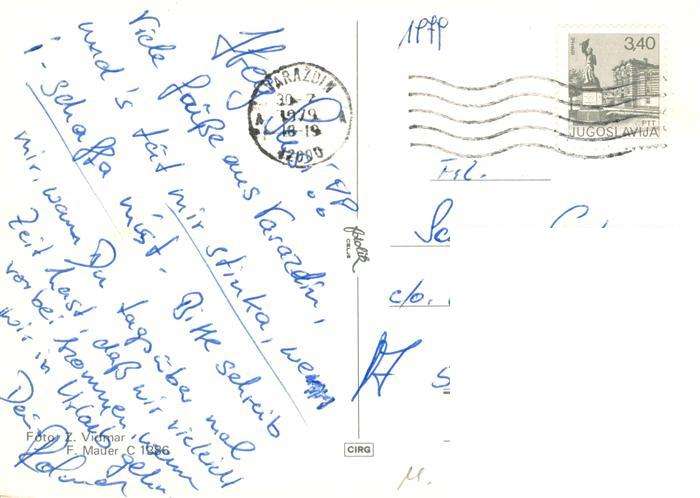 Hey
Viele Grüße aus Varazdin,
und's tät mir stinka, wenn
i schaffa müst. Bitte schreib
mir, wann Du tagsüber mal
Zeit hast, daß wir vielleicht
vorbei kommen, wenn
wir in Urlaub gehn
Dein
Foto: Z. Vidmar
F. Mauer C 1286
VARAŽDIN
30 7
1979
18-19
42000
fotolik
CELJE
CIRG
1979
3,40
PTT
JUGOSLAVIJA
Frl.
c/o.
M.